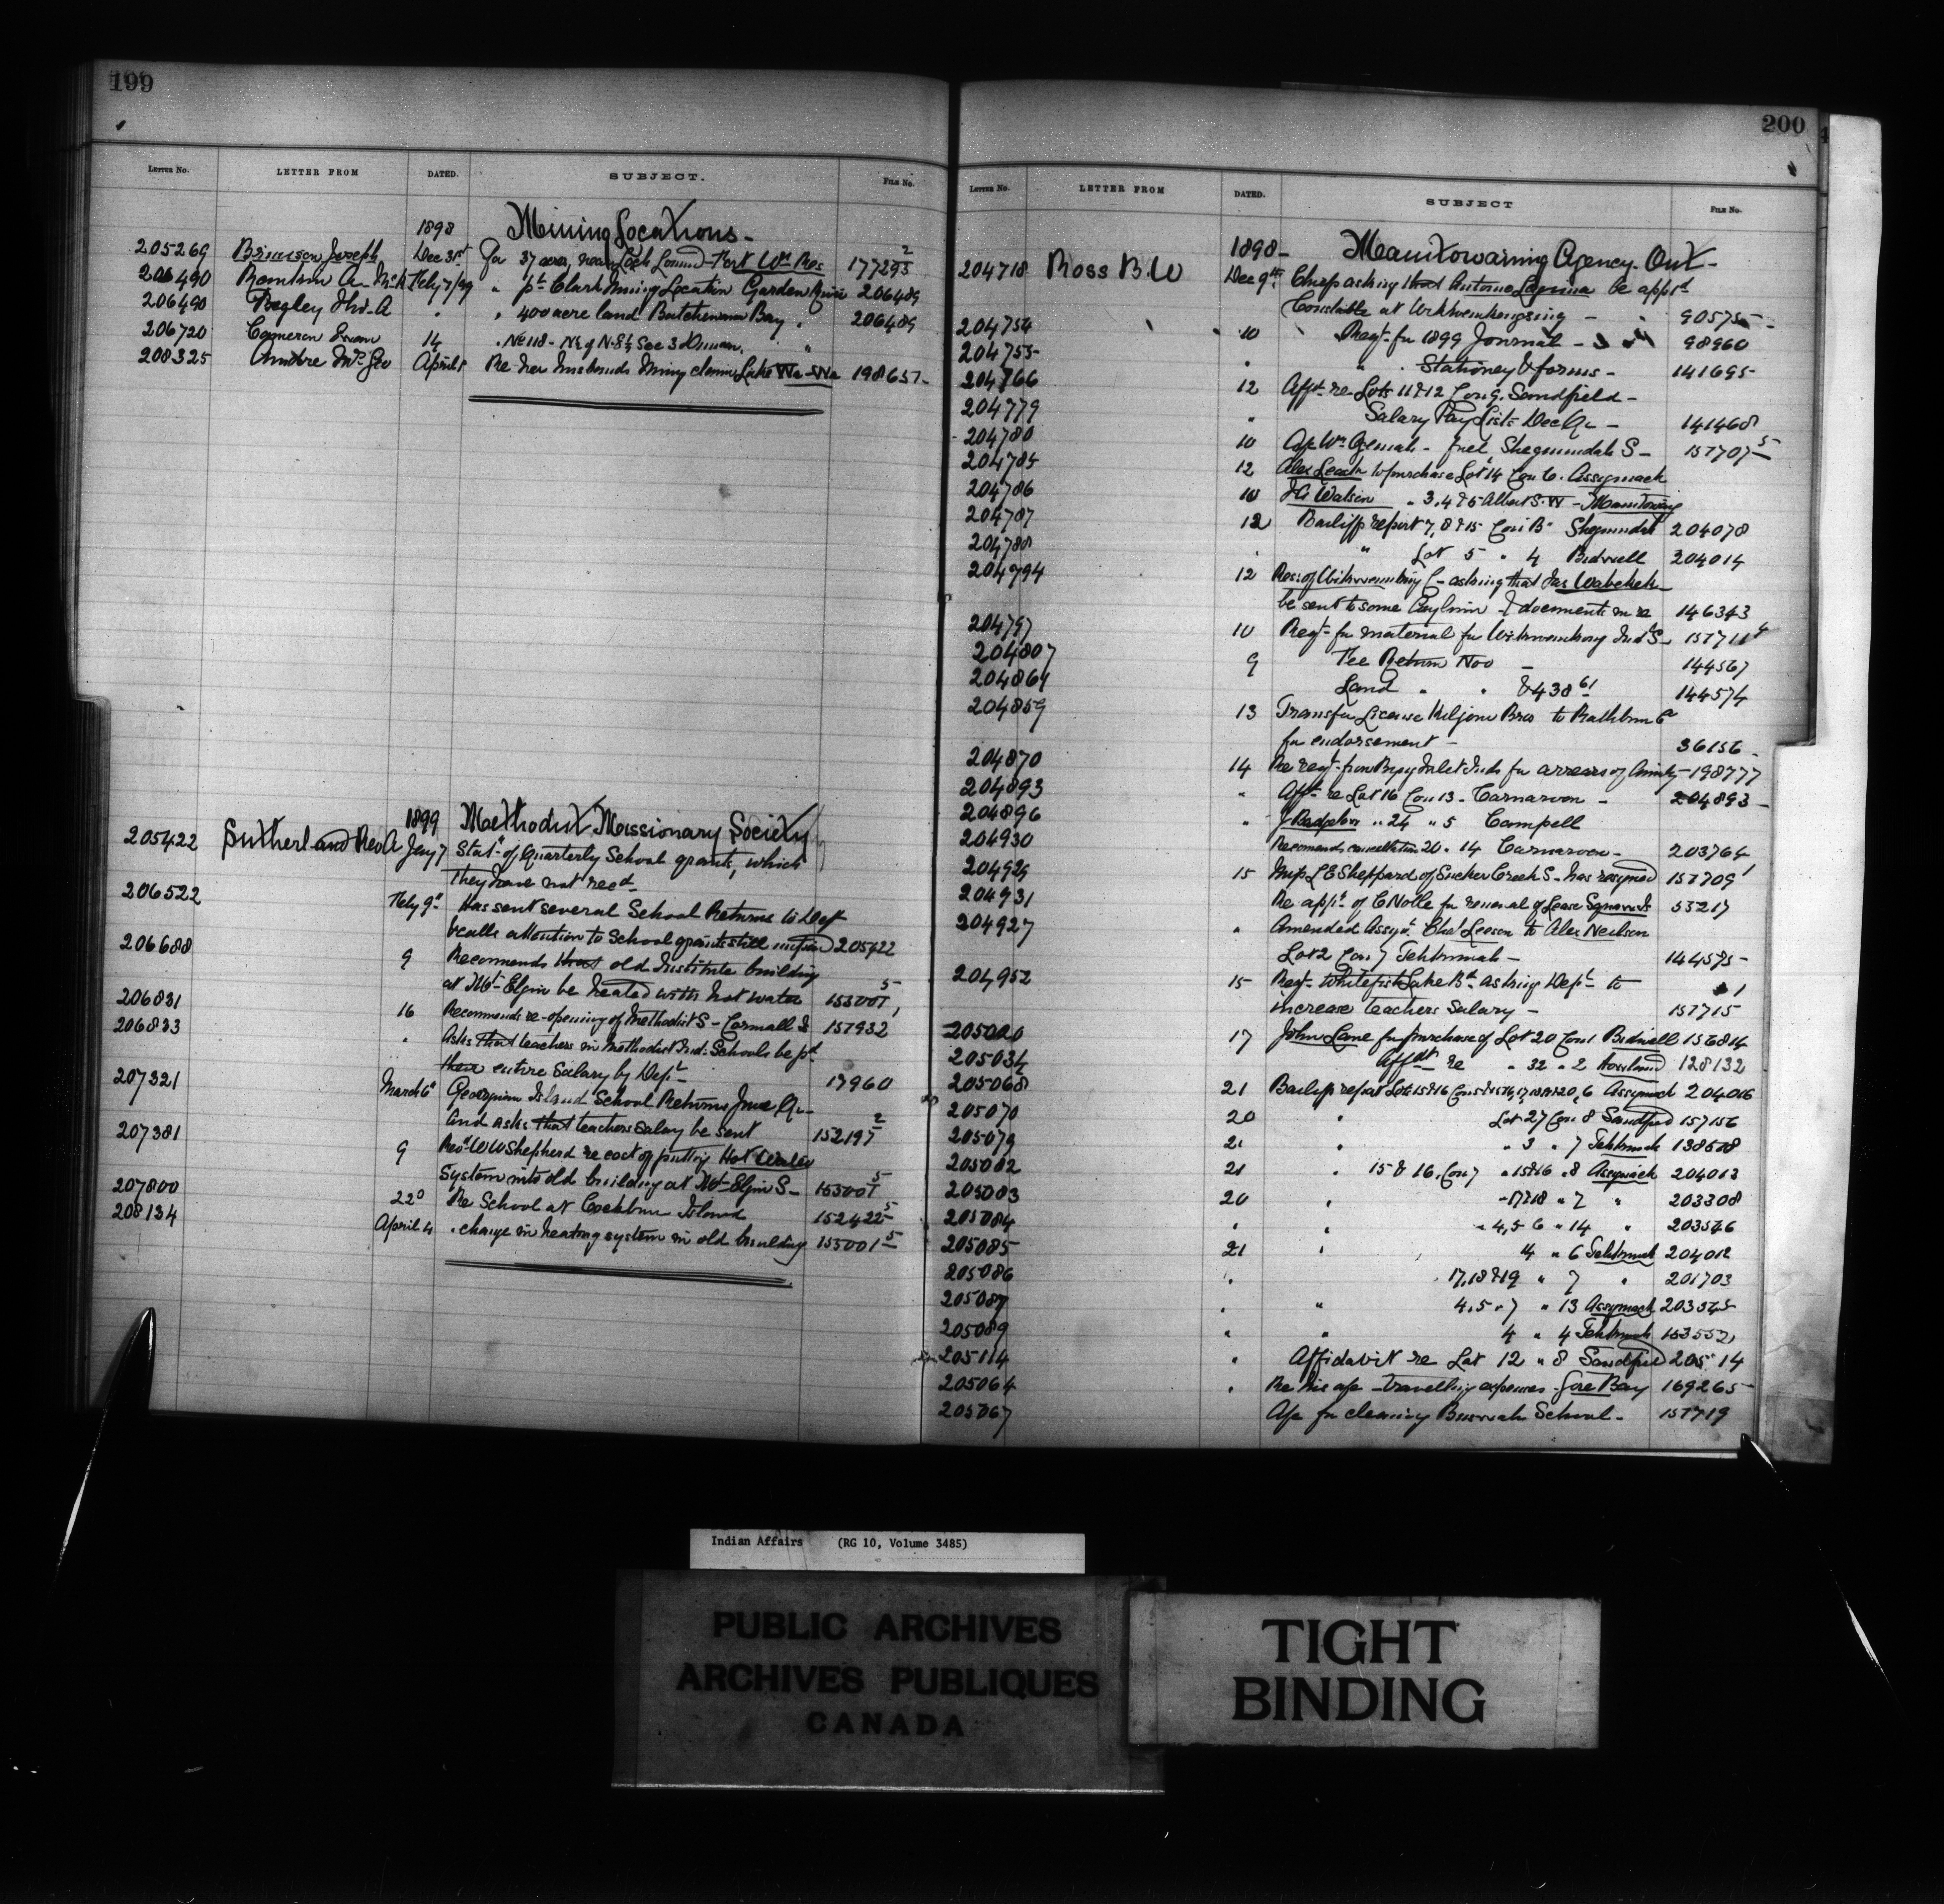 199
LETTER No. LETTER FROM DATED. SUBJECT. FILE No.
1898 Mining Locations -
205269 Brunson Joseph Dec 31st For 37 acres, near Loch Lomond Fort Wm Res 177293 2
206490 Feby 7/99 " pt Clark Mining Location Garden River 206489
206490 Begley Jno. A " " 400 acre land Batchewana Bay " 206489
206720 Cameron 14 " No 118 - N½ of N.E¼ Sec 3 "
208325 Mrs Geo April 5 Re her husbands Mining claims Lake Wa-Wa 198657
1899 Methodist Missionary Society
205422 Sutherland Rev A Jany 7 Stat. of Quarterly School grants, which
they have not recd.
206522 Feby 9th Has sent several School Returns to Dept
recalls attention to School grants still unpaid 205422
206688 9 Recomends that old Institute building
at Mt Elgin be heated with hot water 155001 5
206831 16 Recomends re-opening of Methodist S - Cornwall Is 157932
206833 " Asks that teachers in Methodist Ind. Schools be pd
their entire Salary by Dept 17960
207321 March 6th Georgina Island School Returns June Qr -
and asks that teachers salary be sent 152197 2
207381 9 Revd W W Shepherd re cost of putting Hot Water
System into old building at Mt Elgin S - 155001 5
207800 22d Re School at Cockburn Island 152422 5
208134 April 4 " change in heating system in old building 155001 5
200
LETTER No. LETTER FROM DATED. SUBJECT FILE No.
1898 - Manitowaning Agency - Out -
204718 Ross B. W Dec 9th Chief asking that Antoine be apptd
Constable at Wikwemikongsing - 90575
204754 10 Reqt for 1899 Journal - 98960
204755 " " Stationery & forms - 141695
204766 12 Afft re Lots 11 & 12 Con 9. Sandfield -
204779 " Salary Pay Lists Dec Qr - 141468
204780 10 A/c Wm - fuel, Sheguindah S - 157707 5
204785 12 Alex Leach to purchase Lot 14 Con 6. Assiginack
204786 10 J G Watson " 3, 4 & 5 Albert S. W - Manitowng
204787 12 Bailiff report 7, 8 & 15 Con B Sheguindah 204078
204788 " " Lot 5 " 4 Bidwell 204014
204794 12 Res: of Wikwemikong C - asking that Jas Wabekek
be sent to some Asylum & documents in re 146343
204797 10 Reqt for material for Wikwemikong Ind S - 157711 4
204807 9 Fee Return Nov - 144567
204864 Land " " $438 61 144574
204859 13 Transfer License Kilgour Bros to Rathbun Co
for endorsement - 36156
204870 14 Re reqt from Inds for arrears of Annuity - 198777
204893 " Afft re Lot 16 Con 13 - Carnarvon - 204893
204896 " " 24 " 5 Campbell
204930 Recomends cancellation 20 " 14 Carnarvon - 203764
204929 15 Miss L E Sheppard of Sucker Creek S - has resigned 157709 1
204931 Re appn of C Nolle for renewal of Lease 53217
204927 " Amended Assgt Chas Leeson to Alex Neilson
Lot 2 Con 7 Tehkummah - 144575
204952 15 Reqt Whitefish Lake Bd asking Dept to
increase teachers Salary - 157715 1
205020 17 John Lane for purchase of Lot 20 Con 1 Bidwell 156814
205034 Affdt re " 32 " 2 Howland 128132
205068 21 Bailiff report Lots 15 & 16 Con 5 & 15, 16, 17, 18, 19 & 20, 6 Assignack 204016
205070 20 " Lot 27 Con 8 Sandfield 157156
205079 21 " " 3 " 7 Tehkumah 138578
205082 21 " 15 & 16, Con 7 " 15 & 16 " 8 Assignack 204013
205083 20 " " 17 & 18 " 7 " 203308
205084 " " " 4, 5 6 " 14 " 203546
205085 21 " 4 " 6 Tehkumah 204012
205086 " 17, 18 & 19 " 7 " 201703
205087 " " 4, 5 " 7 " 13 Assignack 203545
205089 " " 4 " 4 Tehkumah 153552
205114 " Affidavit re Lot 12 " 8 Sandfield 205114
205064 " Re his a/c travelling expenses - Gore Bay 169265
205067 A/c for cleaning School - 157719
Indian Affairs (RG 10, Volume 3485)
PUBLIC ARCHIVES
ARCHIVES PUBLIQUES
CANADA
TIGHT
BINDING